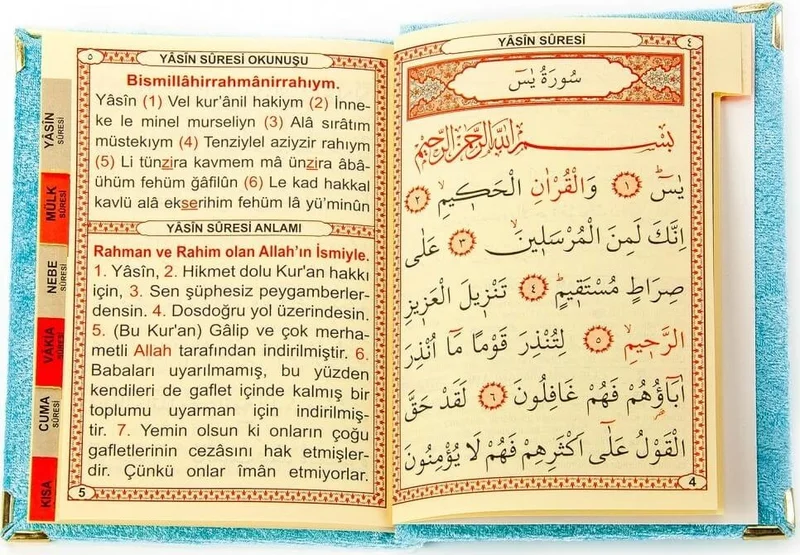 YÂSÎN SÛRESİ
٤
سُورَةُ يٰسٓ
بِسْمِ اللّٰهِ الرَّحْمٰنِ الرَّحٖيمِ
يٰسٓ ﴿١﴾ وَالْقُرْاٰنِ الْحَكٖيمِ ﴿٢﴾
اِنَّكَ لَمِنَ الْمُرْسَلٖينَ ﴿٣﴾ عَلٰى
صِرَاطٍ مُسْتَقٖيمٍ ﴿٤﴾ تَنْزٖيلَ الْعَزٖيزِ
الرَّحٖيمِ ﴿٥﴾ لِتُنْذِرَ قَوْمًا مَٓا اُنْذِرَ
اٰبَٓاؤُ۬هُمْ فَهُمْ غَافِلُونَ ﴿٦﴾ لَقَدْ حَقَّ
الْقَوْلُ عَلٰٓى اَكْثَرِهِمْ فَهُمْ لَا يُؤْمِنُونَ
4
٥
YÂSÎN SÛRESİ OKUNUŞU
Bismillâhirrahmânirrahıym.
Yâsîn (1) Vel kur'ânil hakiym (2) İnne-
ke le minel murseliyn (3) Alâ sırâtım
müstekıym (4) Tenziylel aziyzir rahıym
(5) Li tünzira kavmem mâ ünzira âbâ-
ühüm fehüm ğafilûn (6) Le kad hakkal
kavlü alâ ekserihim fehüm lâ yü'minûn
YÂSÎN SÛRESİ ANLAMI
Rahman ve Rahim olan Allah'ın İsmiyle.
1. Yâsîn, 2. Hikmet dolu Kur'an hakkı
için, 3. Sen şüphesiz peygamberler-
densin. 4. Dosdoğru yol üzerindesin.
5. (Bu Kur'an) Gâlip ve çok merha-
metli Allah tarafından indirilmiştir. 6.
Babaları uyarılmamış, bu yüzden
kendileri de gaflet içinde kalmış bir
toplumu uyarman için indirilmiş-
tir. 7. Yemin olsun ki onların çoğu
gafletlerinin cezasını hak etmişler-
dir. Çünkü onlar îmân etmiyorlar.
5
YÂSİN
SÛRESİ
MÜLK
SÛRESİ
NEBE
SÛRESİ
VÂKIA
SÛRESİ
CUMA
SÛRESİ
KISA